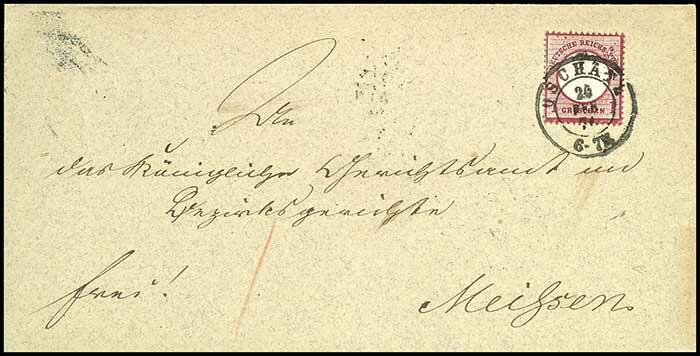 DEUTSCHE REICHS-POST
OSCHATZ
26
FEB
GROSCHEN
6-7N
An
das Königliche Gerichtsamt im
Bezirksgerichte
frei!
Meissen.